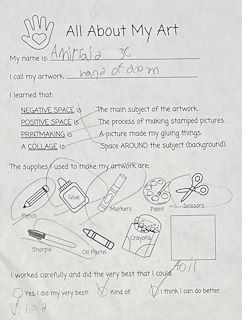 All About My Art
My name is: 3C
I call my artwork of doom
I learned that:
NEGATIVE SPACE is The main subject of the artwork.
POSITIVE SPACE is The process of making stamped pictures.
PRINTMAKING is A picture made my gluing things.
A COLLAGE is Space AROUND the subject (background).
The supplies I used to make my artwork are:
Pencil Glue Markers Paint Scissors
Sharpie Oil Pastel Crayons
I worked carefully and did the very best that I could.
Yes I did my very best! Kind of. I think I can do better.